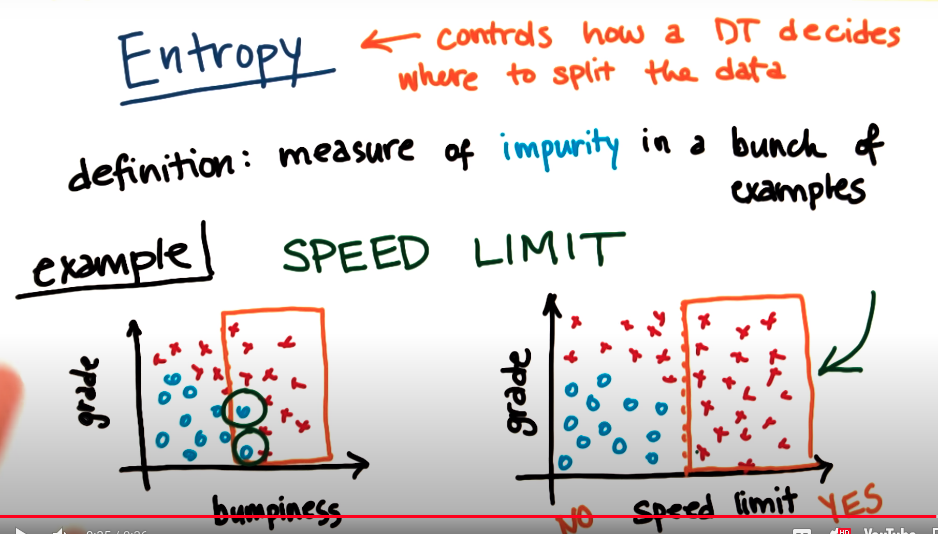 Entropy
← controls how a DT decides
where to split the data
definition: measure of impurity in a bunch of
examples
example
SPEED LIMIT
grade
bumpiness
grade
NO speed limit YES
HD YouTube